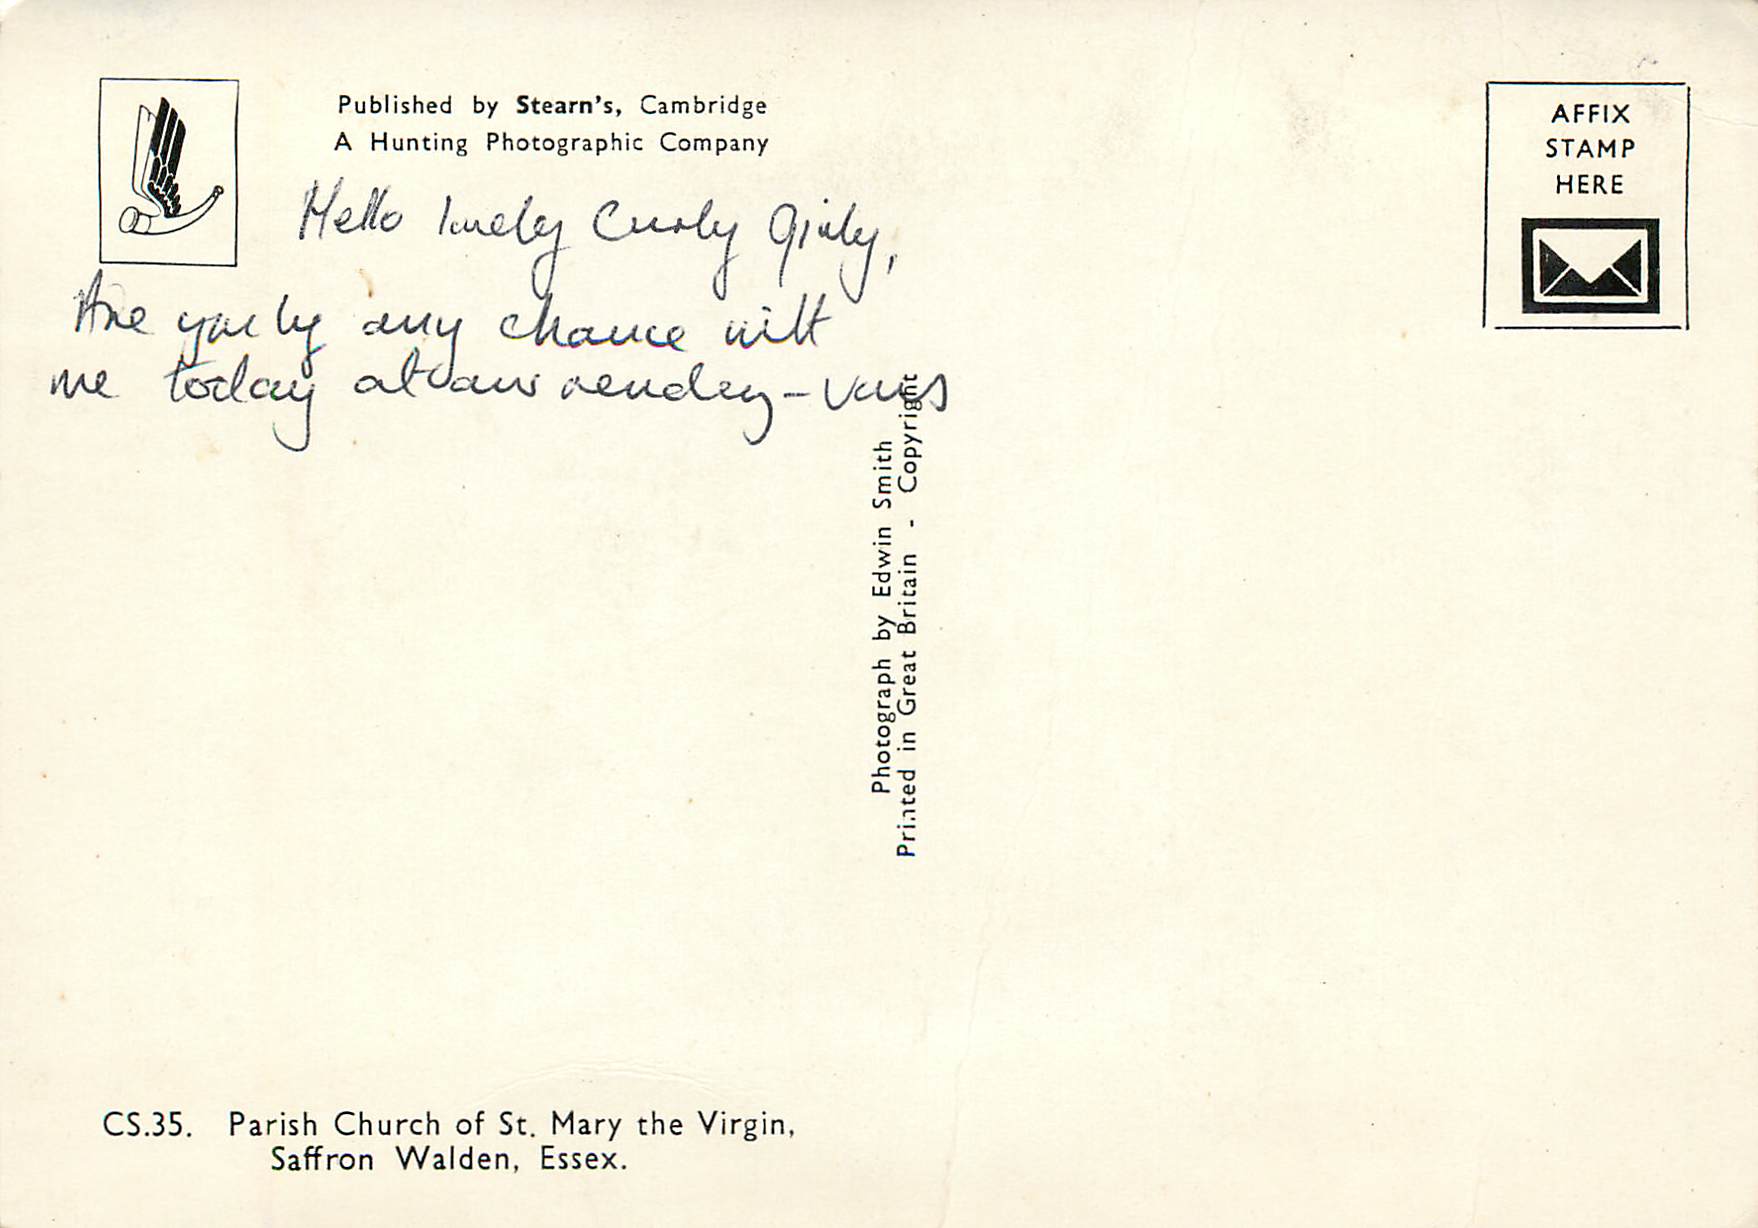 Published by Stearn's, Cambridge
A Hunting Photographic Company
AFFIX
STAMP
HERE
Hello lovely Curly Girly,
Are you by any chance with
me today at our rendez-vous
Photograph by Edwin Smith
Printed in Great Britain - Copyright
CS.35. Parish Church of St. Mary the Virgin,
Saffron Walden, Essex.